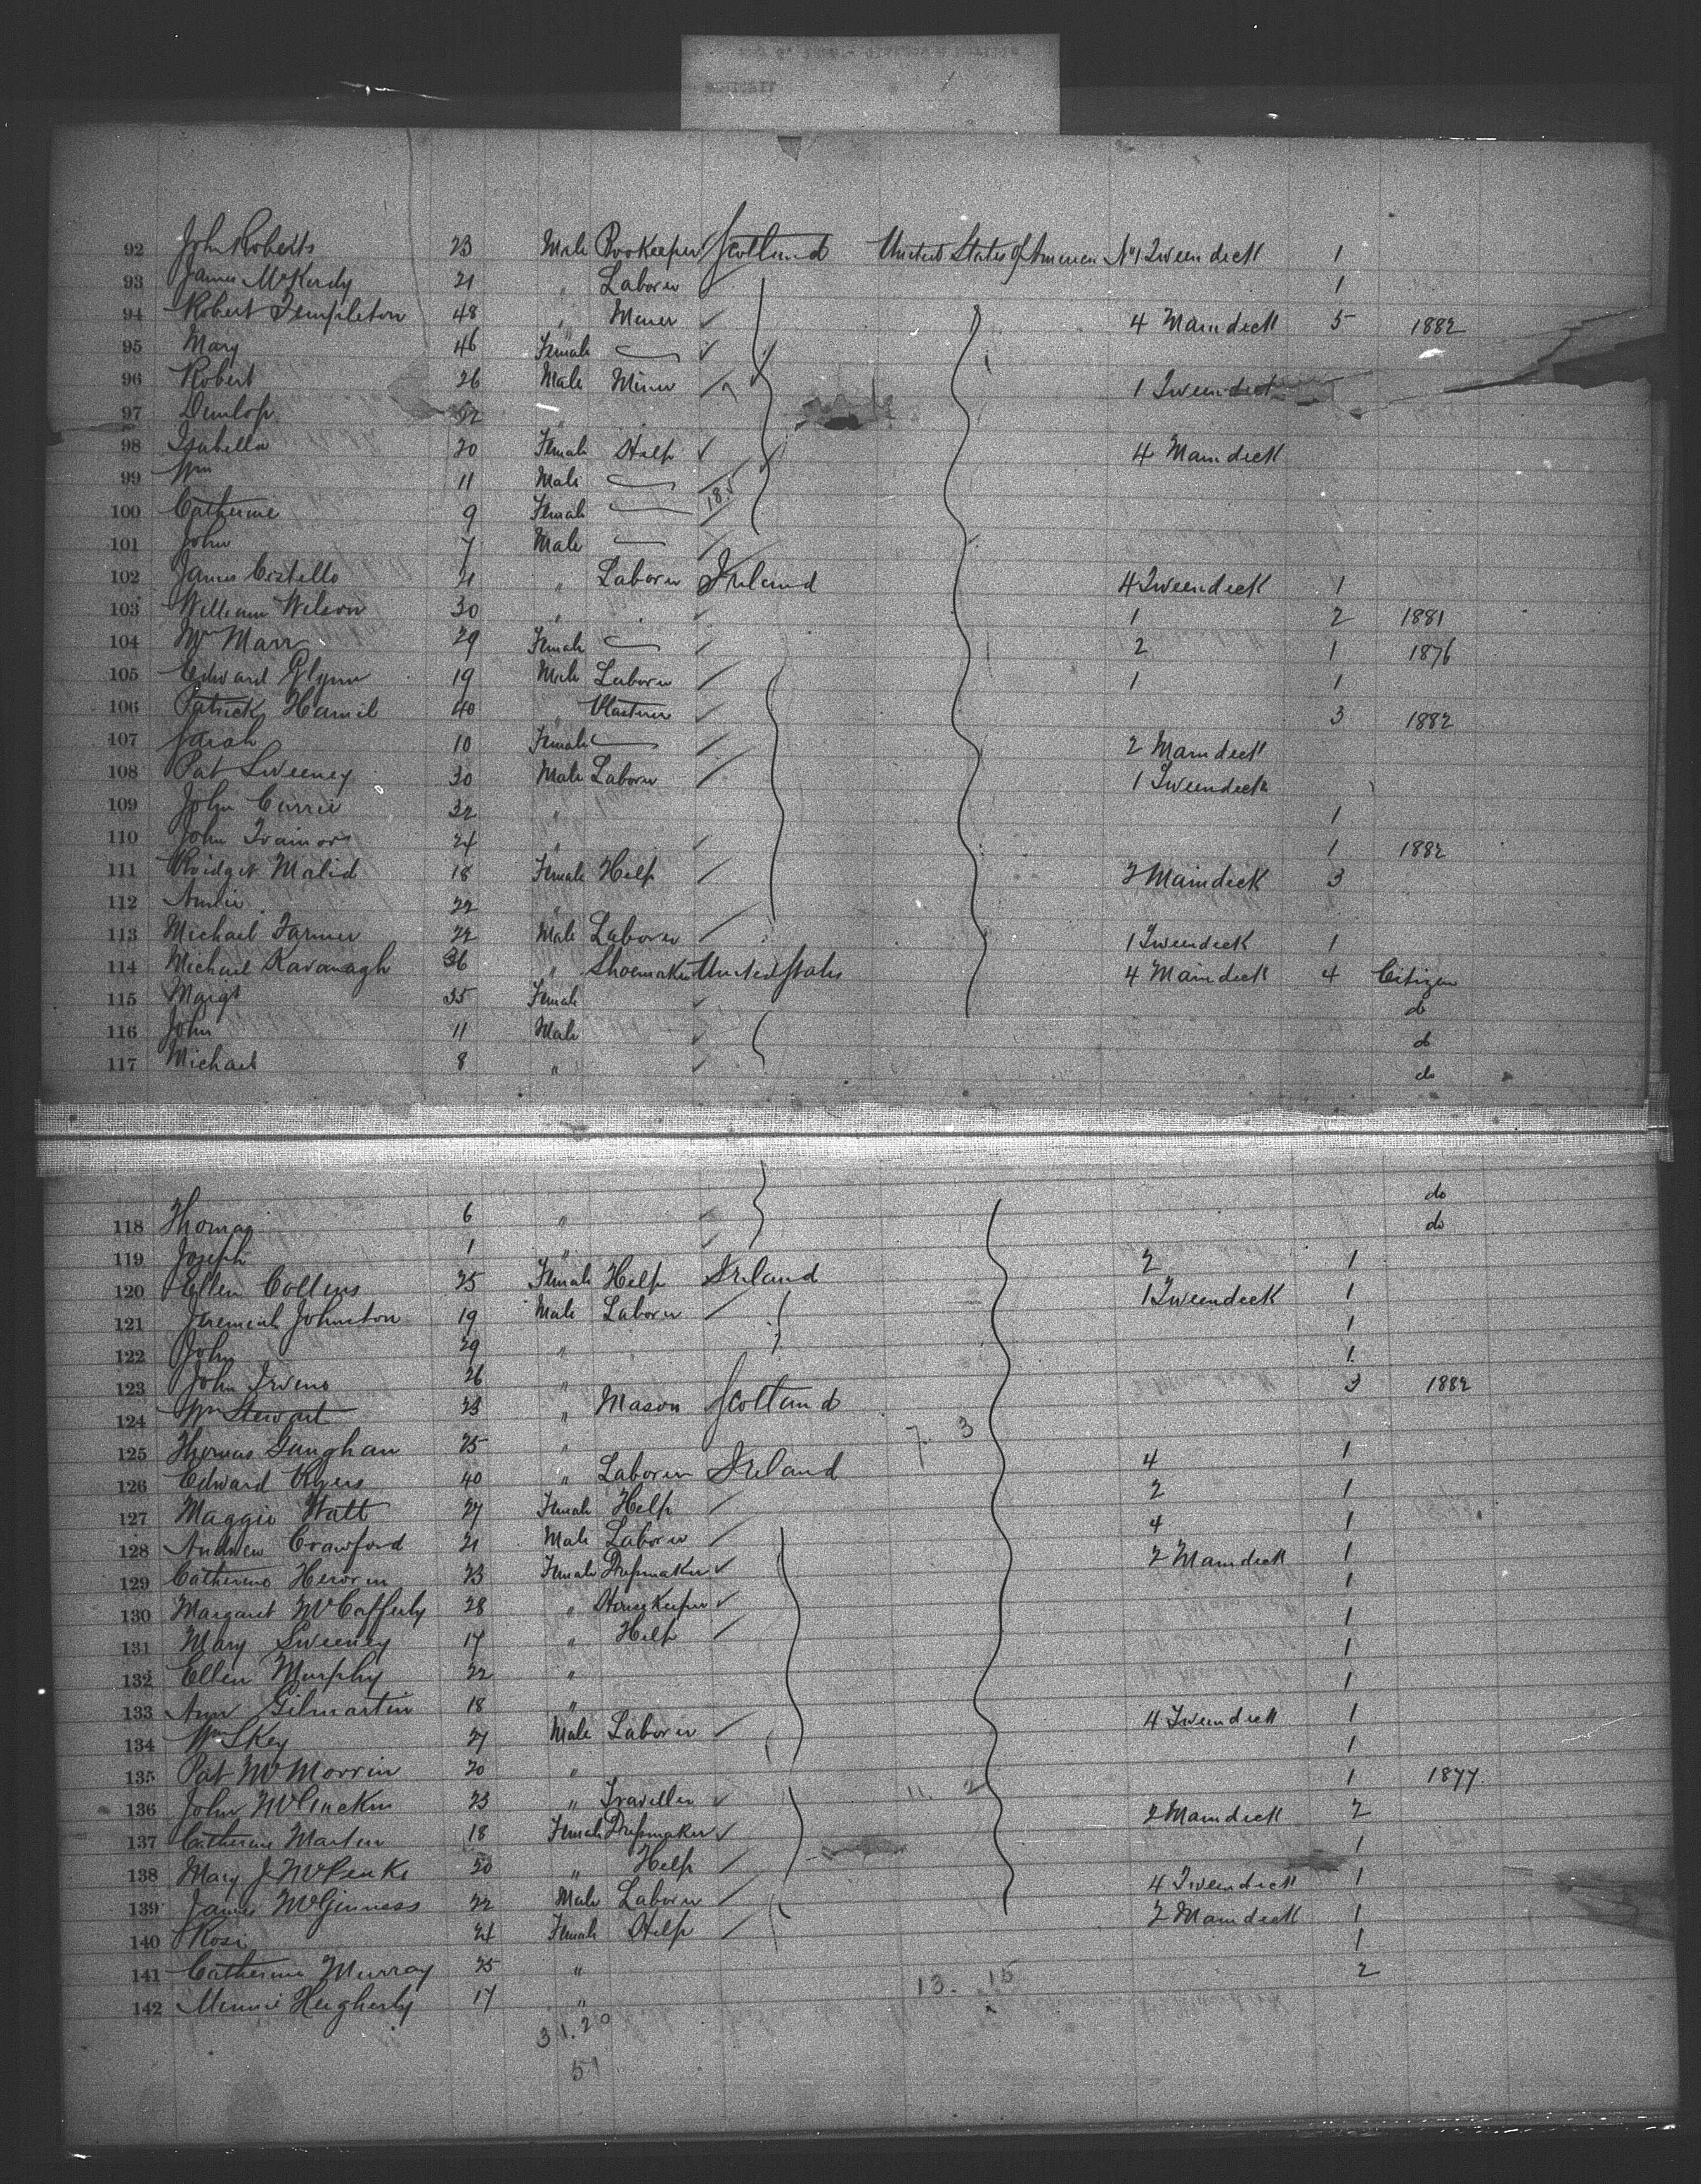 92 John Roberts 23 Male Bookeeper Scotland United States of America No 1 Tweendeck 1
93 James McKurdy 21 " Laborer 1
94 Robert Templeton 48 " Miner 4 Maindeck 5 1882
95 Mary 46 Female
96 Robert 26 Male Miner 1 Tweendeck
97 Dunlop 22 "
98 Isabella 20 Female Help 4 Maindeck
99 Wm 11 Male
100 Catherine 9 Female
101 John 7 Male
102 James Costello 21 " Laborer Ireland 4 Tweendeck 1
103 William Wilson 30 " 1 2 1881
104 Marr 29 Female 2 1 1876
105 Edward Glynn 19 Male Laborer 1 1
106 Patrick Hamil 40 " Plasterer 3 1882
107 Sarah 10 Female 2 Maindeck
108 Pat Sweeney 30 Male Laborer 1 Tweendeck
109 John Currie 32 " 1
110 John Trainor 24 " 1 1882
111 Bridget Malid 18 Female Help 2 Maindeck 3
112 Amelia 22 "
113 Michael Farmer 22 Male Laborer 1 Tweendeck 1
114 Michael Kavanagh 36 " Shoemaker United States 4 Maindeck 4 Citizen
115 Margt 35 Female do
116 John 11 Male do
117 Michael 8 " do
118 Thomas 6 " do
119 Joseph 1 " do
120 Ellen Collins 25 Female Help Ireland 2 1
121 Jeremiah Johnston 19 Male Laborer 1 Tweendeck 1
122 John 29 " 1
123 John 26 " 1
124 Wm Stewart 23 " Mason Scotland 3 1882
125 Thomas Gaughan 25 "
126 Edward 40 " Laborer Ireland 4 1
127 Maggie Watt 27 Female Help 2 1
128 Andrew Crawford 21 Male Laborer 4 1
129 Catherine 23 Female Dressmaker 2 Maindeck 1
130 Margaret McCafferty 28 " Housekeeper 1
131 Mary Sweeney 17 " Help 1
132 Ellen Murphy 22 " 1
133 Ann Gilmartin 18 " 1
134 Wm Skey 27 Male Laborer 4 Tweendeck 1
135 Pat McMorrin 20 " 1
136 John 23 " Traveller 1 1877
137 Catherine Martin 18 Female Dressmaker 2 Maindeck 2
138 Mary J 20 " Help 1
139 James McGinness 22 Male Laborer 4 Tweendeck 1
140 Rose 24 Female Help 2 Maindeck 1
141 Catherine Murray 25 " 1
142 Minnie Hegherty 17 " 2
13. 15
31.20
51